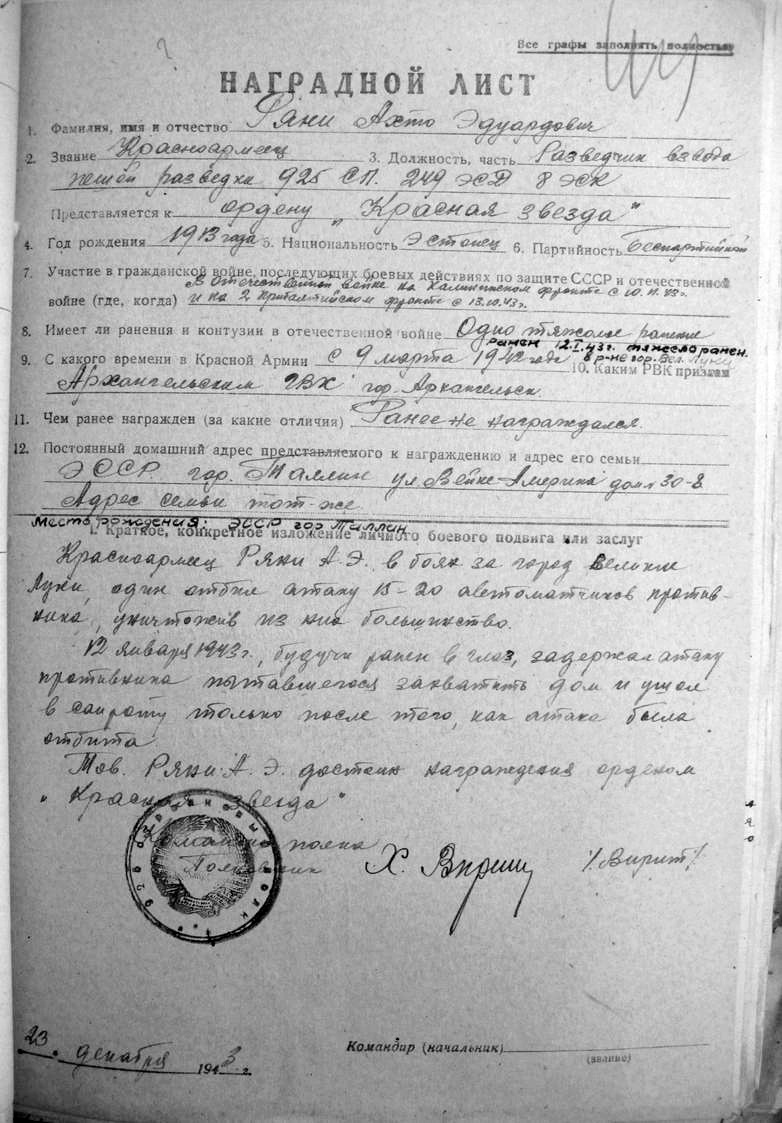 Все графы заполнять полностью
НАГРАДНОЙ ЛИСТ
1. Фамилия, имя и отчество Ряни Ахто Эдуардович
2. Звание Красноармеец 3. Должность, часть Разведчик взвода
пешей разведки 925 СП. 249 ЭСД 8 ЭСК
Представляется к ордену „Красная звезда"
4. Год рождения 1913 года 5. Национальность Эстонец 6. Партийность Беспартийный
7. Участие в гражданской войне, последующих боевых действиях по защите СССР и отечественной
В Отечественной войне на Калининском фронте с 10.11.43г.
войне (где, когда) и на 2 Прибалтийском фронте с 13.10.43г.
8. Имеет ли ранения и контузии в отечественной войне Одно тяжолое ранение
ранен 12.I.43г. тяжело ранен.
9. С какого времени в Красной Армии с 9 марта 1942 года в р-не гор. Вел. Луки
10. Каким РВК призван
Архангельским ГВК гор. Архангельск.
11. Чем ранее награжден (за какие отличия) Ранее не награждался.
12. Постоянный домашний адрес представляемого к награждению и адрес его семьи
ЭССР гор. Таллин ул. Вейке-Америка дом 30-8
Адрес семьи тот-же.
Место рождения: ЭССР гор Таллин
I. Краткое, конкретное изложение личного боевого подвига или заслуг
Красноармеец Ряни А.Э. в боях за город Великие
Луки, один отбил атаку 15-20 автоматчиков против-
ника, уничтожив из них большинство.
12 января 1943г., будучи ранен в глаз, задержал атаку
противника пытавшегося захватить дом и ушол
в санроту только после того, как атака была
отбита.
Тов. Ряни А.Э. достоин награждения орденом
„Красная звезда"
Командир полка
Полковник Х. Вирит /Вирит/
23 декабря 1943 г.
Командир (начальник)
(звание)